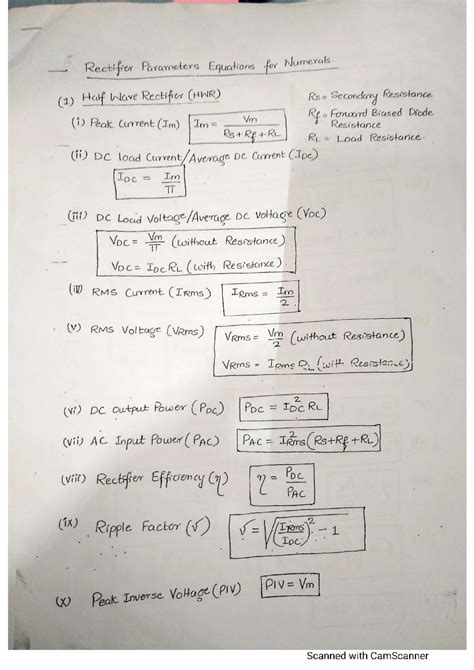 Rectifier Parameters Equations for Numerals.
(1) Half Wave Rectifier (HWR)
Rs = Secondary Resistance
Rf = Forward Biased Diode Resistance
RL = Load Resistance.
(i) Peak Current (Im) Im = Vm / Rs + Rf + RL
(ii) DC load Current/Average DC Current (IDC)
IDC = Im / π
(iii) DC Load Voltage/Average DC Voltage (VDC)
VDC = Vm / π (without Resistance)
VDC = IDC RL (with Resistance)
(iv) RMS Current (IRms) IRms = Im / 2
(v) RMS Voltage (VRms) VRms = Vm / 2 (without Resistance)
VRms = IRms RL (with Resistance)
(vi) DC Output Power (PDC) PDC = I²DC RL
(vii) AC Input Power (PAC) PAC = I²Rms (Rs+Rf+RL)
(viii) Rectifier Efficiency (η) η = PDC / PAC
(ix) Ripple Factor (√) √ = √(IRms / IDC)² - 1
(x) Peak Inverse Voltage (PIV) PIV = Vm
Scanned with CamScanner